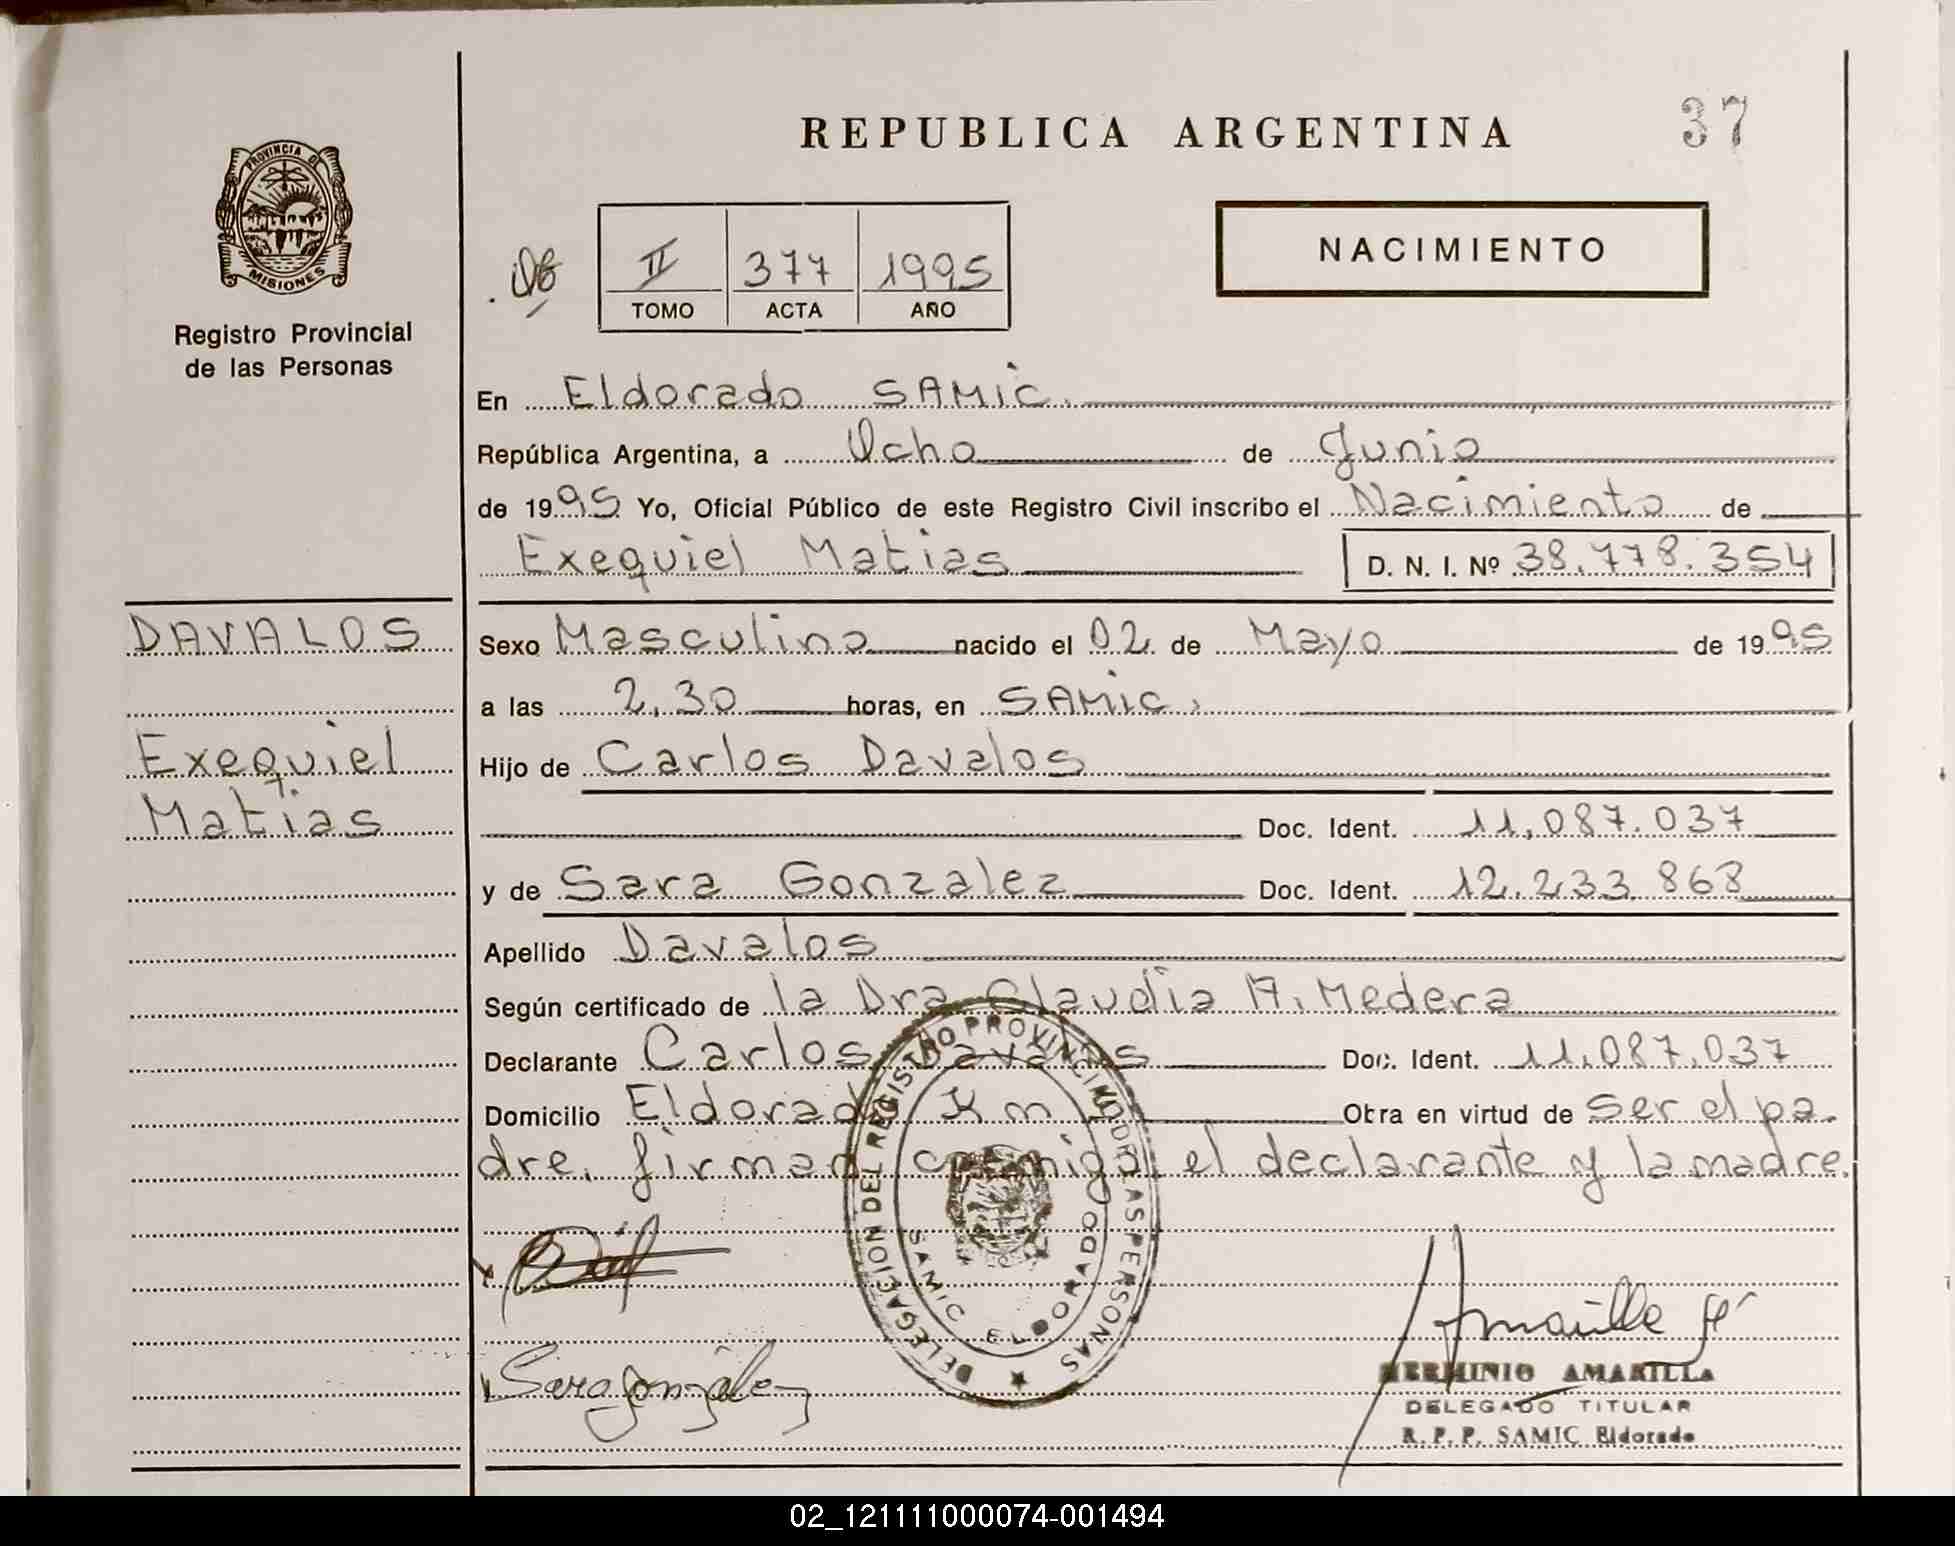 REPUBLICA ARGENTINA
37
PROVINCIA D
MISIONES
Registro Provincial
de las Personas
II 377 1995
TOMO ACTA AÑO
NACIMIENTO
En Eldorado SAMiC.
República Argentina, a Ocho de Junio
de 1995 Yo, Oficial Público de este Registro Civil inscribo el Nacimiento de
Exequiel Matias D. N. I. Nº 38.778.354
DAVALOS
Exequiel
Matias
Sexo Masculino nacido el 02 de Mayo de 1995
a las 2,30 horas, en SAMiC.
Hijo de Carlos Davalos
Doc. Ident. 11.087.037
y de Sara Gonzalez Doc. Ident. 12.233.868
Apellido Davalos
Según certificado de la Dra Claudia A. Medera
Declarante Carlos Davalos Doc. Ident. 11.087.037
Domicilio Eldorado Km Obra en virtud de ser el pa-
dre, firman conmigo el declarante y la madre.
DELEGACION DEL REGISTRO PROVINCIAL DE LAS PERSONAS
SAMIC ELDORADO
Sara Gonzalez
HERMINIO AMARILLA
DELEGADO TITULAR
R. P. P. SAMIC Eldorado
02_121111000074-001494